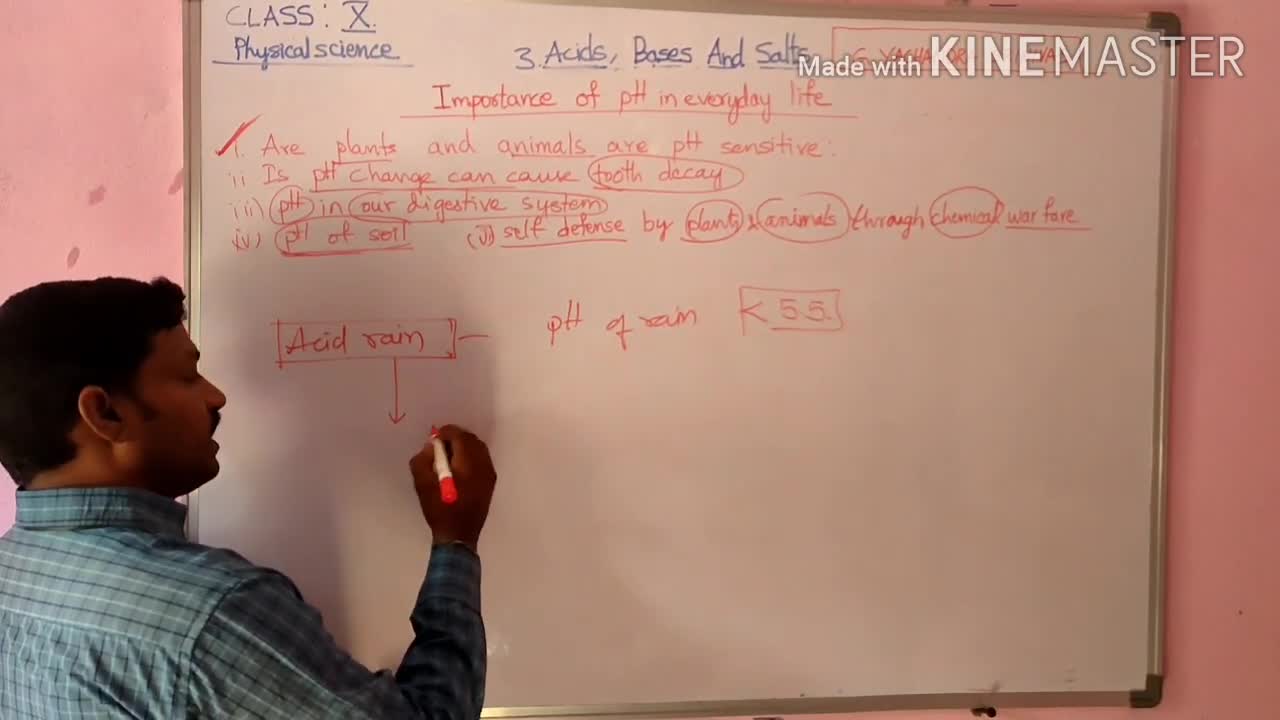 CLASS: X.
Physical science
3. Acids, Bases And Salts
Made with KINEMASTER
Importance of pH in everyday life
i. Are plants and animals are pH sensitive:
ii Is pH change can cause tooth decay
iii) pH in our digestive system
iv) pH of soil (v) self defense by plants & animals through chemical war fare
Acid rain — pH of rain < 5.5.